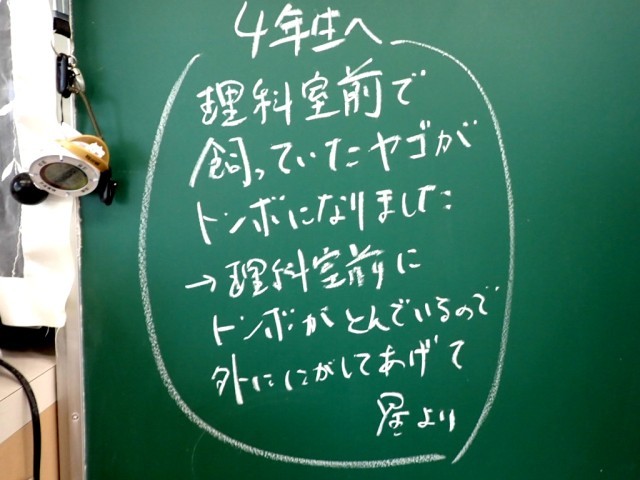 4年生へ
理科室前で
飼っていたヤゴが
トンボになりました
→理科室前に
トンボがとんでいるので
外ににがしてあげて
より